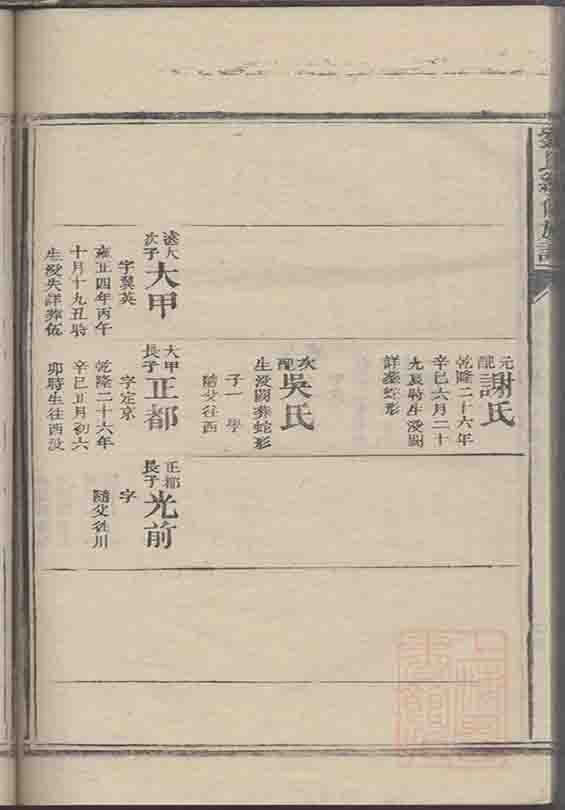 氏續修族譜
元配
謝氏
乾隆二十六年
辛巳六月二十
九辰時生沒闕
詳葬蛇形
次配
吳氏
生沒闕葬蛇形
子一 學
隨父往西
遠大
次子
大甲
字巽英
雍正四年丙午
十月十九丑時
生沒失詳葬伍
大甲
長子
正都
字定京
乾隆二十六年
辛巳正月初六
卯時生往西沒
正都
長子
光前
字
隨父徃川